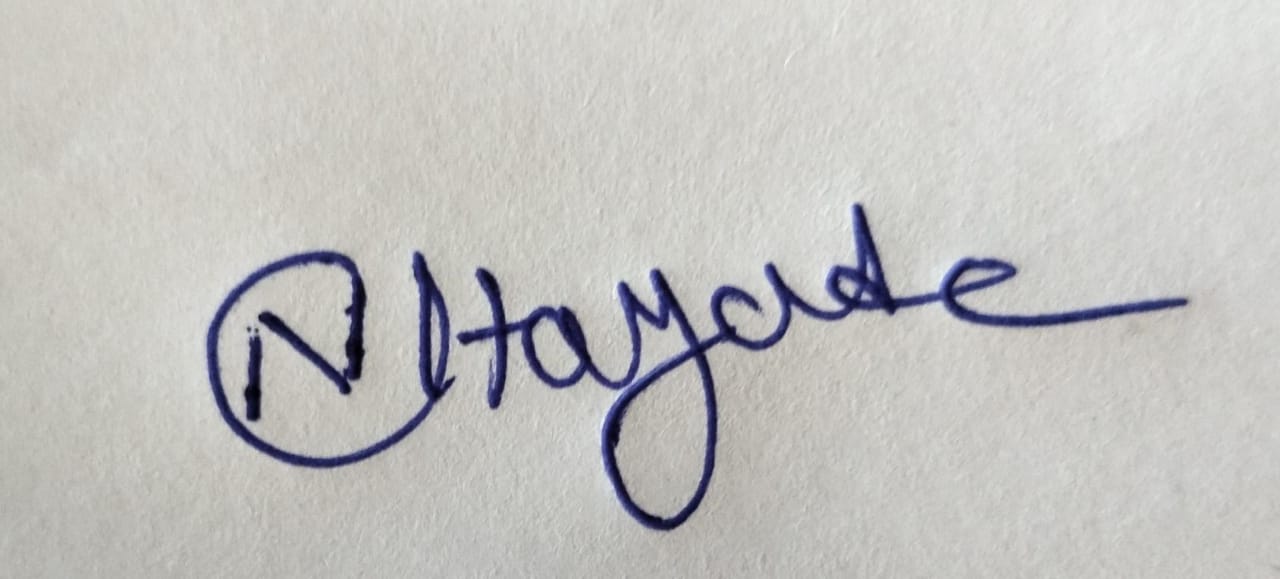 N Hayade